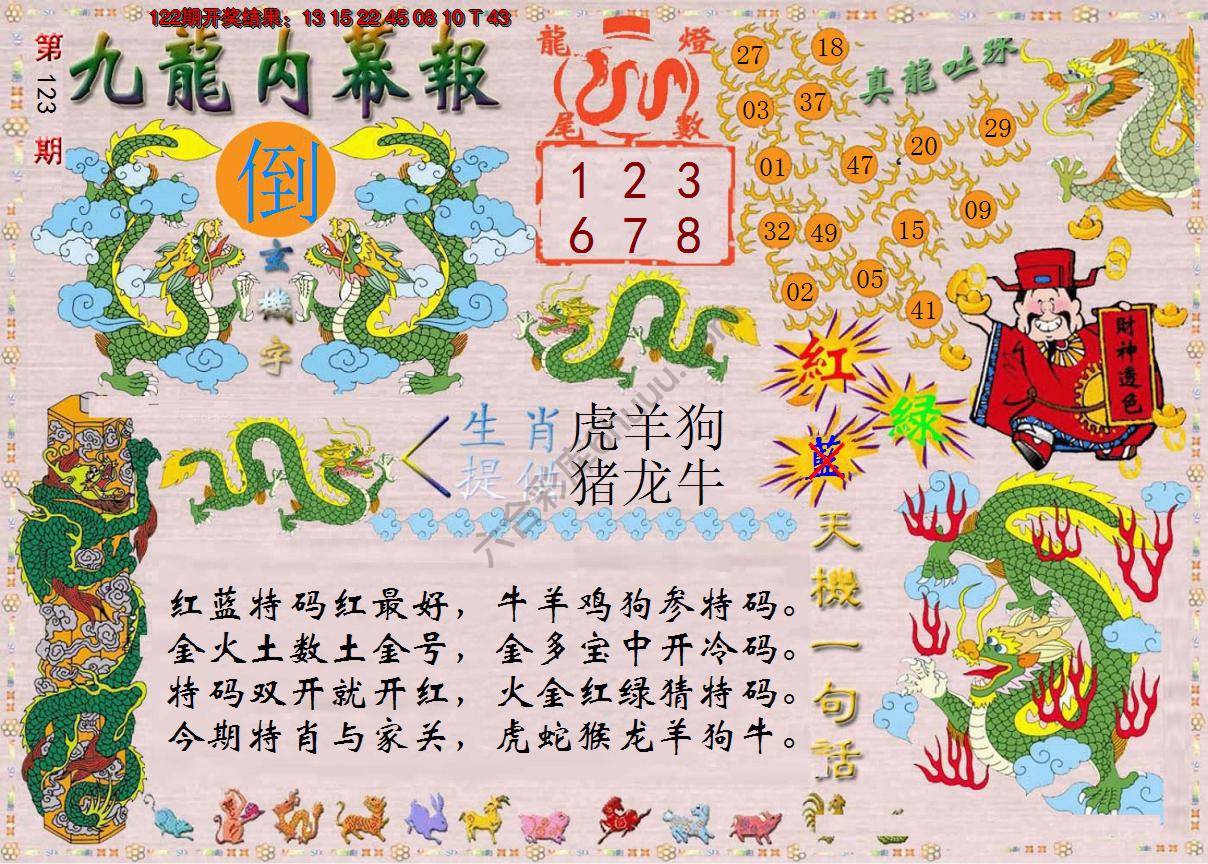 122期开奖结果：13 15 22 45 08 10 T 43
第123期
九龍内幕報
倒
玄機字
龍燈
尾數
1 2 3
6 7 8
真龍吐珠
27 18
03 37
01 47 20 29
32 49 15 09
02 05 41
財神透色
紅
绿
藍
生肖 虎羊狗
提供 猪龙牛
天機一句話
红蓝特码红最好，牛羊鸡狗参特码。
金火土数土金号，金多宝中开冷码。
特码双开就开红，火金红绿猜特码。
今期特肖与家关，虎蛇猴龙羊狗牛。